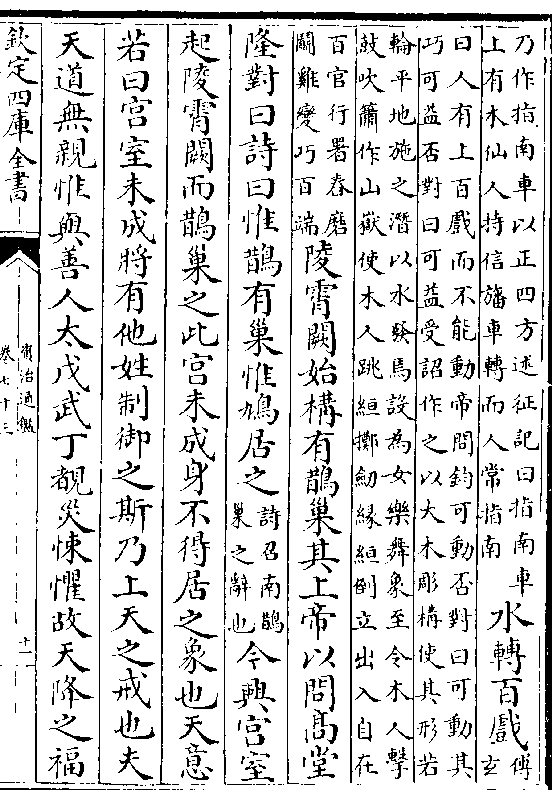 乃作指南車以正四方述征記曰指南車
上有木仙人持信旛車轉而人常指南
水轉百戲
傅玄
曰人有上百戲而不能動帝問鈞可動否對曰可動其
巧可益否對曰可益受詔作之以大木彫構使其形若
輪平地施之潛以水發焉設為女樂舞象至令木人擊
鼓吹簫作山嶽使木人跳絙擲劒緣絙倒立出入自在
百官行署舂磨
鬬雞變巧百端
陵霄闕始構有鵲巢其上帝以問髙堂
隆對曰詩曰惟鵲有巢惟鳩居之
詩召南鵲
巢之辭也
今興宫室
起陵霄闕而鵲巢之此宫未成身不得居之象也天意
若曰宫室未成將有他姓制御之斯乃上天之戒也夫
天道無親惟與善人太戊武丁覩災悚懼故天降之福
欽定四庫全書
資治通鑑
卷七十三
十一